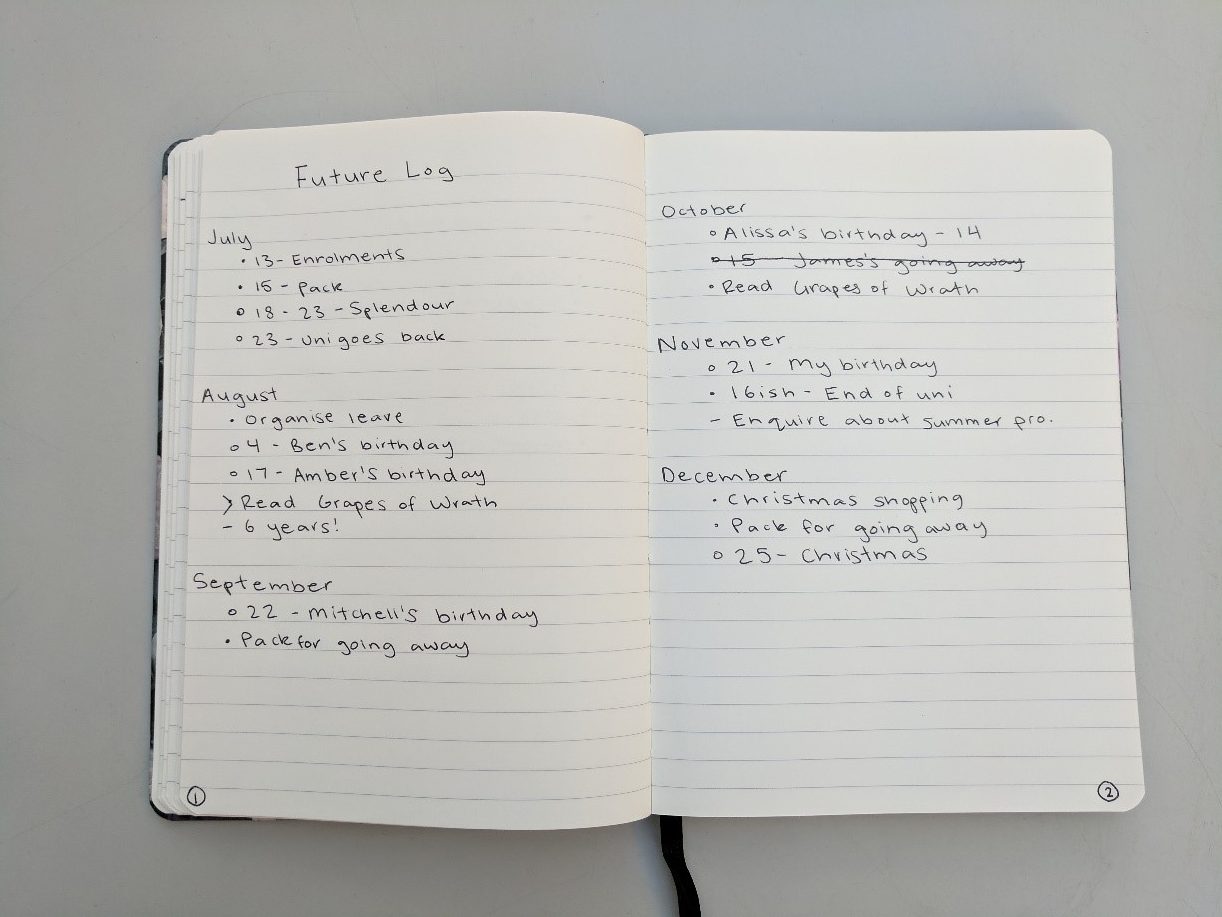 Future Log
July
• 13 - Enrolments
• 15 - Pack
○ 18 - 23 - Splendour
○ 23 - Uni goes back
August
• Organise leave
○ 4 - Ben's birthday
○ 17 - Amber's birthday
> Read Grapes of Wrath
- 6 years!
September
○ 22 - Mitchell's birthday
• Pack for going away
1
October
○ Alissa's birthday - 14
○ 15 - James's going away
• Read Grapes of Wrath
November
○ 21 - My birthday
• 16ish - End of uni
- Enquire about summer pro.
December
• Christmas shopping
• Pack for going away
○ 25 - Christmas
2